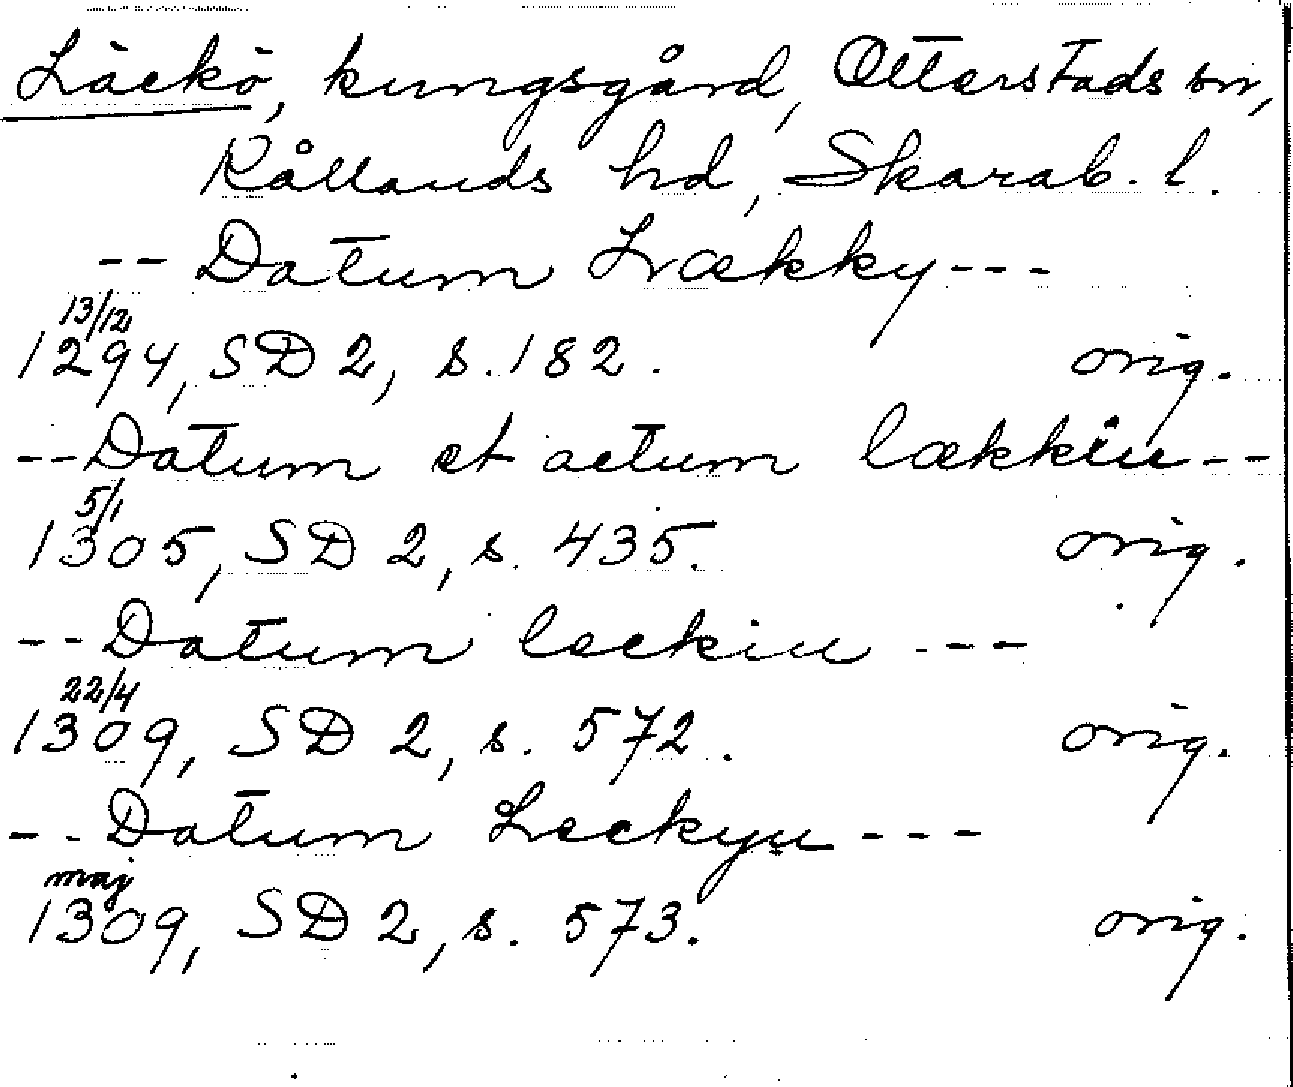 Läckö, kungsgård, Otterstads sn,
Kållands hd, Skarab. l.
-- Datum Lrækky ---
13/12
1294, SD 2, s. 182. orig.
-- Datum et actum lækkiu --
5/1
1305, SD 2, s. 435. orig.
-- Datum leckiu ---
22/4
1309, SD 2, s. 572. orig.
-- Datum Leckyu ---
maj
1309, SD 2, s. 573. orig.